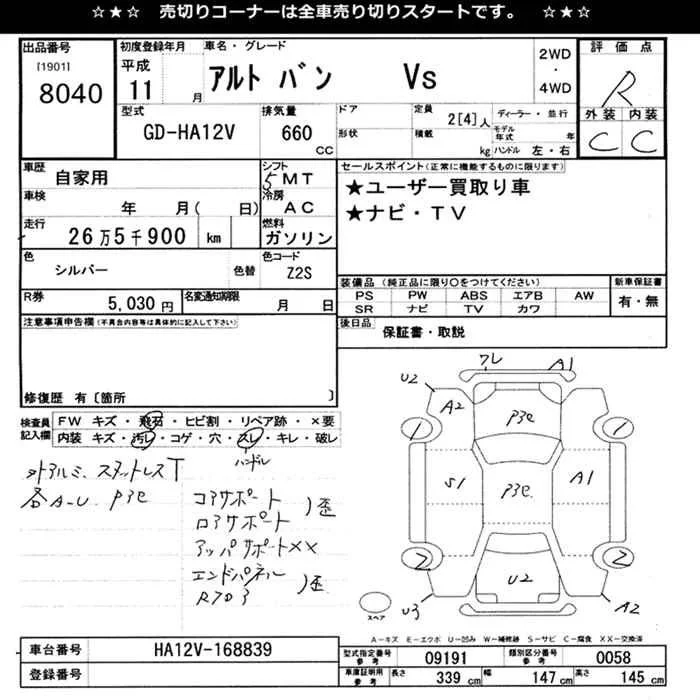 ☆★☆ 売切りコーナーは全車売り切りスタートです。 ☆★☆
出品番号
[1901]
8040
初度登録年月
平成
11 月
車名・グレード
アルト バン Vs
2WD
・
4WD
評価点
R
外装 内装
C C
型式
GD-HA12V
排気量
660 CC
ドア
形状
定員 2[4]人
積載 kg
ディーラー・並行
モデル年式 年
ハンドル 左・右
車歴
自家用
シフト
5MT
車検
年 月( 日)
冷房
AC
走行
26万5千900 km
燃料
ガソリン
色
シルバー
色替
色コード
Z2S
R券
5,030円
名変通知期限
月 日
セールスポイント(正常に機能するものに限ります)
★ユーザー買取り車
★ナビ・TV
装備品(純正品に限り○をつけてください)
PS PW ABS エアB AW
SR ナビ TV カワ
新車保証書
有・無
後日品
保証書・取説
注意事項申告欄(不具合内容等は具体的に記入して下さい)
修復歴 有〔箇所 〕
検査員記入欄
FW キズ・飛石・ヒビ割・リペア跡・×要
内装 キズ・汚レ・コゲ・穴・スレ・キレ・破レ
ハンドル
外アルミ、スタットレスT
各A-U P3e
コアサポート
ロアサポート
)歪
アッパサポート××
エンドパネル
)歪
ワレ
A1
U2
A2
P3e
1
1
S1
P3e
A1
2
2
U2
U3
A2
スペア
A-キズ E-エクボ U-凹み W-補修跡 S-サビ C-腐食 XX-交換済
車台番号
HA12V-168839
登録番号
型式指定番号
参考
09191
類別区分番号
参考
0058
車庫証明用
参考
長さ 339 cm
幅 147 cm
高さ 145 cm